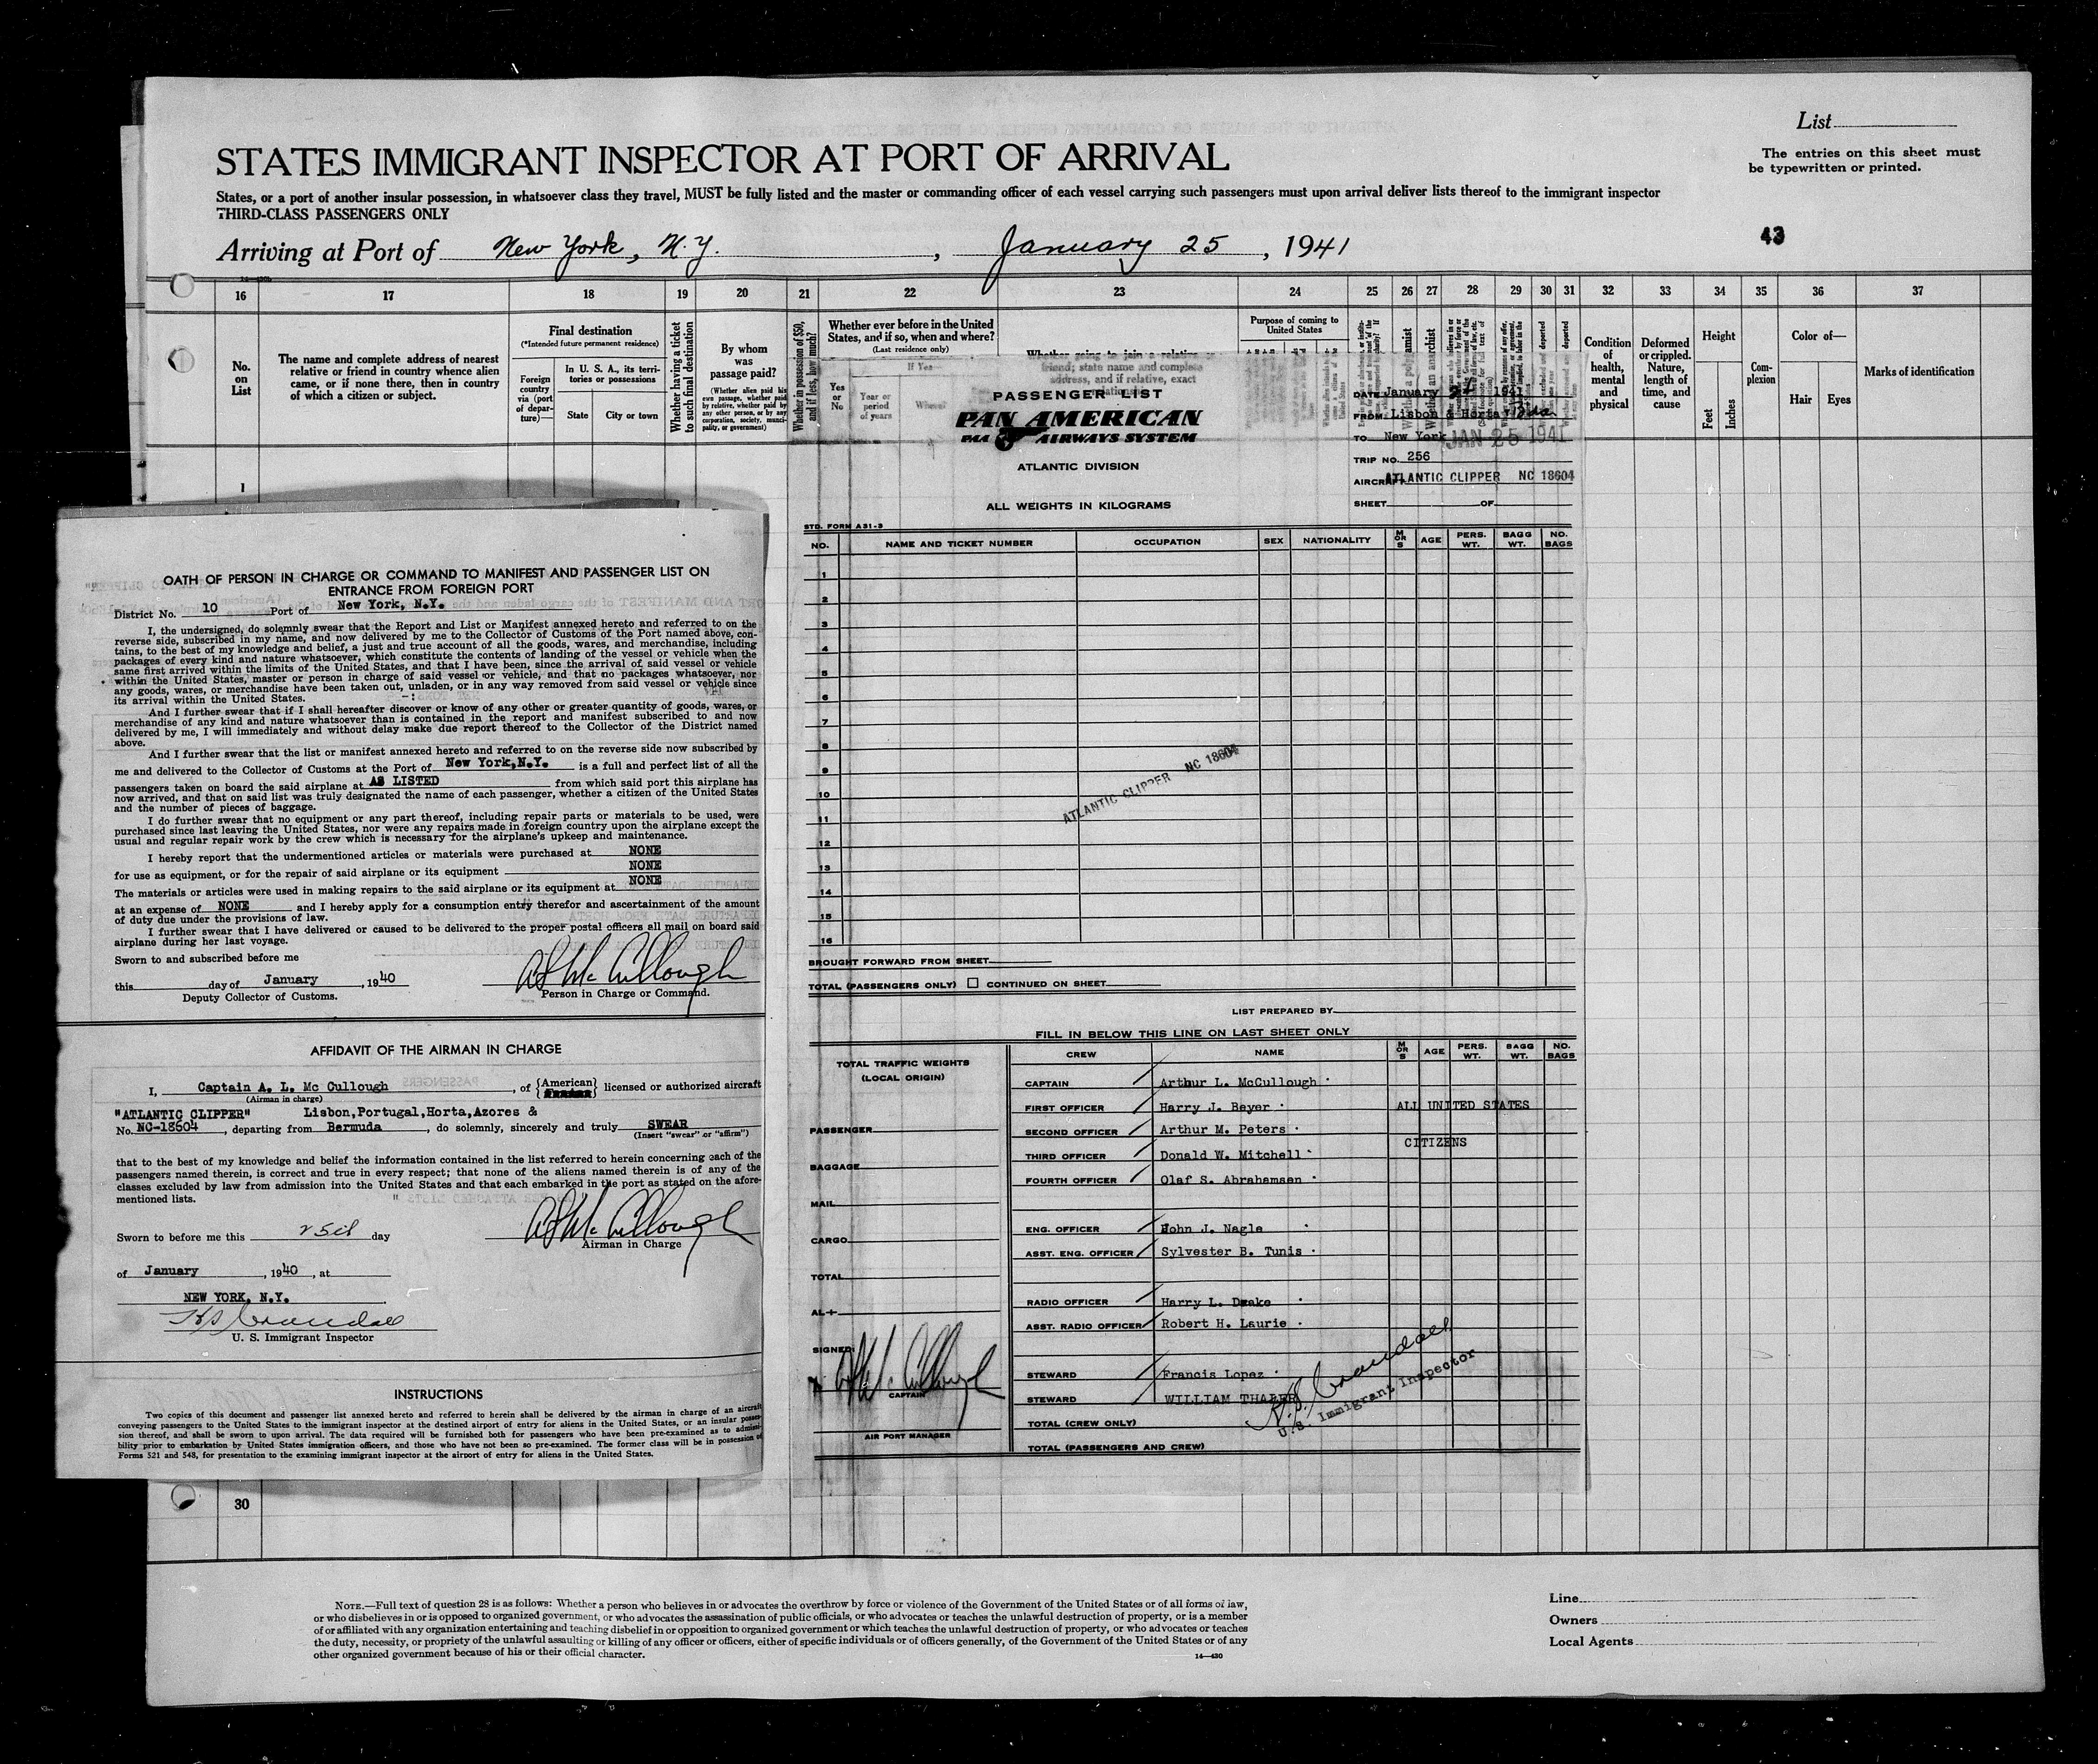 List
The entries on this sheet must
be typewritten or printed.
STATES IMMIGRANT INSPECTOR AT PORT OF ARRIVAL
States, or a port of another insular possession, in whatsoever class they travel, MUST be fully listed and the master or commanding officer of each vessel carrying such passengers must upon arrival deliver lists thereof to the immigrant inspector
THIRD-CLASS PASSENGERS ONLY
43
Arriving at Port of New York, N.Y. , January 25 , 1941
16 17 18 19 20 21 22 23 24 25 26 27 28 29 30 31 32 33 34 35 36 37
No.
on
List
The name and complete address of nearest
relative or friend in country whence alien
came, or if none there, then in country
of which a citizen or subject.
Final destination
(*Intended future permanent residence)
Foreign
country
via (port
of depar-
ture)—
In U. S. A., its terri-
tories or possessions
State
City or town
Whether having a ticket
to such final destination
By whom
was
passage paid?
(Whether alien paid his
own passage, whether paid
by relative, whether paid by
any other person, or by any
corporation, society, munici-
pality, or government)
Whether in possession of $50,
and if less, how much?
Whether ever before in the United
States, and if so, when and where?
(Last residence only)
If Yes—
Yes
or
No
Year or
period
of years
Where?
Whether going to join a relative or
friend; state name and complete
address, and if relative, exact
relationship
Purpose of coming to
United States
Condition
of
health,
mental
and
physical
Deformed
or crippled.
Nature,
length of
time, and
cause
Height
Feet
Inches
Com-
plexion
Color of—
Hair
Eyes
Marks of identification
1
30
PASSENGER LIST
PAN AMERICAN
PAA AIRWAYS SYSTEM
ATLANTIC DIVISION
ALL WEIGHTS IN KILOGRAMS
DATE January 1941
FROM Lisbon & Horta, Bda.
TO New York JAN 25 1941
TRIP NO. 256
AIRCRAFT ATLANTIC CLIPPER NC 18604
SHEET OF
STD. FORM A31-3
NO. NAME AND TICKET NUMBER OCCUPATION SEX NATIONALITY M OR S AGE PERS. WT. BAGG WT. NO. BAGS
1
2
3
4
5
6
7
8
9
10
11
12
13
14
15
16
ATLANTIC CLIPPER NC 18604
BROUGHT FORWARD FROM SHEET
TOTAL (PASSENGERS ONLY) CONTINUED ON SHEET
LIST PREPARED BY
FILL IN BELOW THIS LINE ON LAST SHEET ONLY
TOTAL TRAFFIC WEIGHTS
(LOCAL ORIGIN)
PASSENGER
BAGGAGE
MAIL
CARGO
TOTAL
AL+
SIGNED:
A L McCullough
CAPTAIN
AIR PORT MANAGER
CREW NAME M OR S AGE PERS. WT. BAGG WT. NO. BAGS
CAPTAIN Arthur L. McCullough
FIRST OFFICER Harry J. Beyer ALL UNITED STATES
SECOND OFFICER Arthur M. Peters
CITIZENS
THIRD OFFICER Donald W. Mitchell
FOURTH OFFICER Olaf S. Abrahamsen
ENG. OFFICER John J. Nagle
ASST. ENG. OFFICER Sylvester B. Tunis
RADIO OFFICER Harry L. Drake
ASST. RADIO OFFICER Robert H. Laurie
STEWARD Francis Lopez
STEWARD WILLIAM THALER
TOTAL (CREW ONLY)
TOTAL (PASSENGERS AND CREW)
H.S. Crandall
U.S. Immigrant Inspector
OATH OF PERSON IN CHARGE OR COMMAND TO MANIFEST AND PASSENGER LIST ON
ENTRANCE FROM FOREIGN PORT
District No. 10 Port of New York, N.Y.
I, the undersigned, do solemnly swear that the Report and List or Manifest annexed hereto and referred to on the
reverse side, subscribed in my name, and now delivered by me to the Collector of Customs of the Port named above, con-
tains, to the best of my knowledge and belief, a just and true account of all the goods, wares, and merchandise, including
packages of every kind and nature whatsoever, which constitute the contents of landing of the vessel or vehicle when the
same first arrived within the limits of the United States, and that I have been, since the arrival of said vessel or vehicle
within the United States, master or person in charge of said vessel or vehicle, and that no packages whatsoever, nor
any goods, wares, or merchandise have been taken out, unladen, or in any way removed from said vessel or vehicle since
its arrival within the United States.
And I further swear that if I shall hereafter discover or know of any other or greater quantity of goods, wares, or
merchandise of any kind and nature whatsoever than is contained in the report and manifest subscribed to and now
delivered by me, I will immediately and without delay make due report thereof to the Collector of the District named
above.
And I further swear that the list or manifest annexed hereto and referred to on the reverse side now subscribed by
me and delivered to the Collector of Customs at the Port of New York,N.Y. is a full and perfect list of all the
passengers taken on board the said airplane at AS LISTED from which said port this airplane has
now arrived, and that on said list was truly designated the name of each passenger, whether a citizen of the United States
and the number of pieces of baggage.
I do further swear that no equipment or any part thereof, including repair parts or materials to be used, were
purchased since last leaving the United States, nor were any repairs made in foreign country upon the airplane except the
usual and regular repair work by the crew which is necessary for the airplane's upkeep and maintenance.
I hereby report that the undermentioned articles or materials were purchased at NONE
for use as equipment, or for the repair of said airplane or its equipment NONE
The materials or articles were used in making repairs to the said airplane or its equipment at NONE
at an expense of NONE and I hereby apply for a consumption entry therefor and ascertainment of the amount
of duty due under the provisions of law.
I further swear that I have delivered or caused to be delivered to the proper postal officers all mail on board said
airplane during her last voyage.
Sworn to and subscribed before me
this day of January , 1940 A L McCullough
Deputy Collector of Customs. Person in Charge or Command.
AFFIDAVIT OF THE AIRMAN IN CHARGE
I, Captain A. L. Mc Cullough , of {American} licensed or authorized aircraft
(Airman in charge)
"ATLANTIC CLIPPER" Lisbon,Portugal,Horta,Azores &
No. NC-18604 , departing from Bermuda , do solemnly, sincerely and truly SWEAR
(Insert "swear" or "affirm")
that to the best of my knowledge and belief the information contained in the list referred to herein concerning each of the
passengers named therein, is correct and true in every respect; that none of the aliens named therein is of any of the
classes excluded by law from admission into the United States and that each embarked in the port as stated on the afore-
mentioned lists.
Sworn to before me this 25th day A L McCullough
Airman in Charge
of January , 1940 , at
NEW YORK, N.Y.
H S Crandall
U. S. Immigrant Inspector
INSTRUCTIONS
Two copies of this document and passenger list annexed hereto and referred to herein shall be delivered by the airman in charge of an aircraft
conveying passengers to the United States to the immigrant inspector at the destined airport of entry for aliens in the United States, or an insular posses-
sion thereof, and shall be sworn to upon arrival. The data required will be furnished both for passengers who have been pre-examined as to admissi-
bility prior to embarkation by United States immigration officers, and those who have not been so pre-examined. The former class will be in possession of
Forms 521 and 548, for presentation to the examining immigrant inspector at the airport of entry for aliens in the United States.
NOTE.—Full text of question 28 is as follows: Whether a person who believes in or advocates the overthrow by force or violence of the Government of the United States or of all forms of law,
or who disbelieves in or is opposed to organized government, or who advocates the assassination of public officials, or who advocates or teaches the unlawful destruction of property, or is a member
of or affiliated with any organization entertaining and teaching disbelief in or opposition to organized government or which teaches the unlawful destruction of property, or who advocates or teaches
the duty, necessity, or propriety of the unlawful assaulting or killing of any officer or officers, either of specific individuals or of officers generally, of the Government of the United States or of any
other organized government because of his or their official character.
14—430
Line
Owners
Local Agents